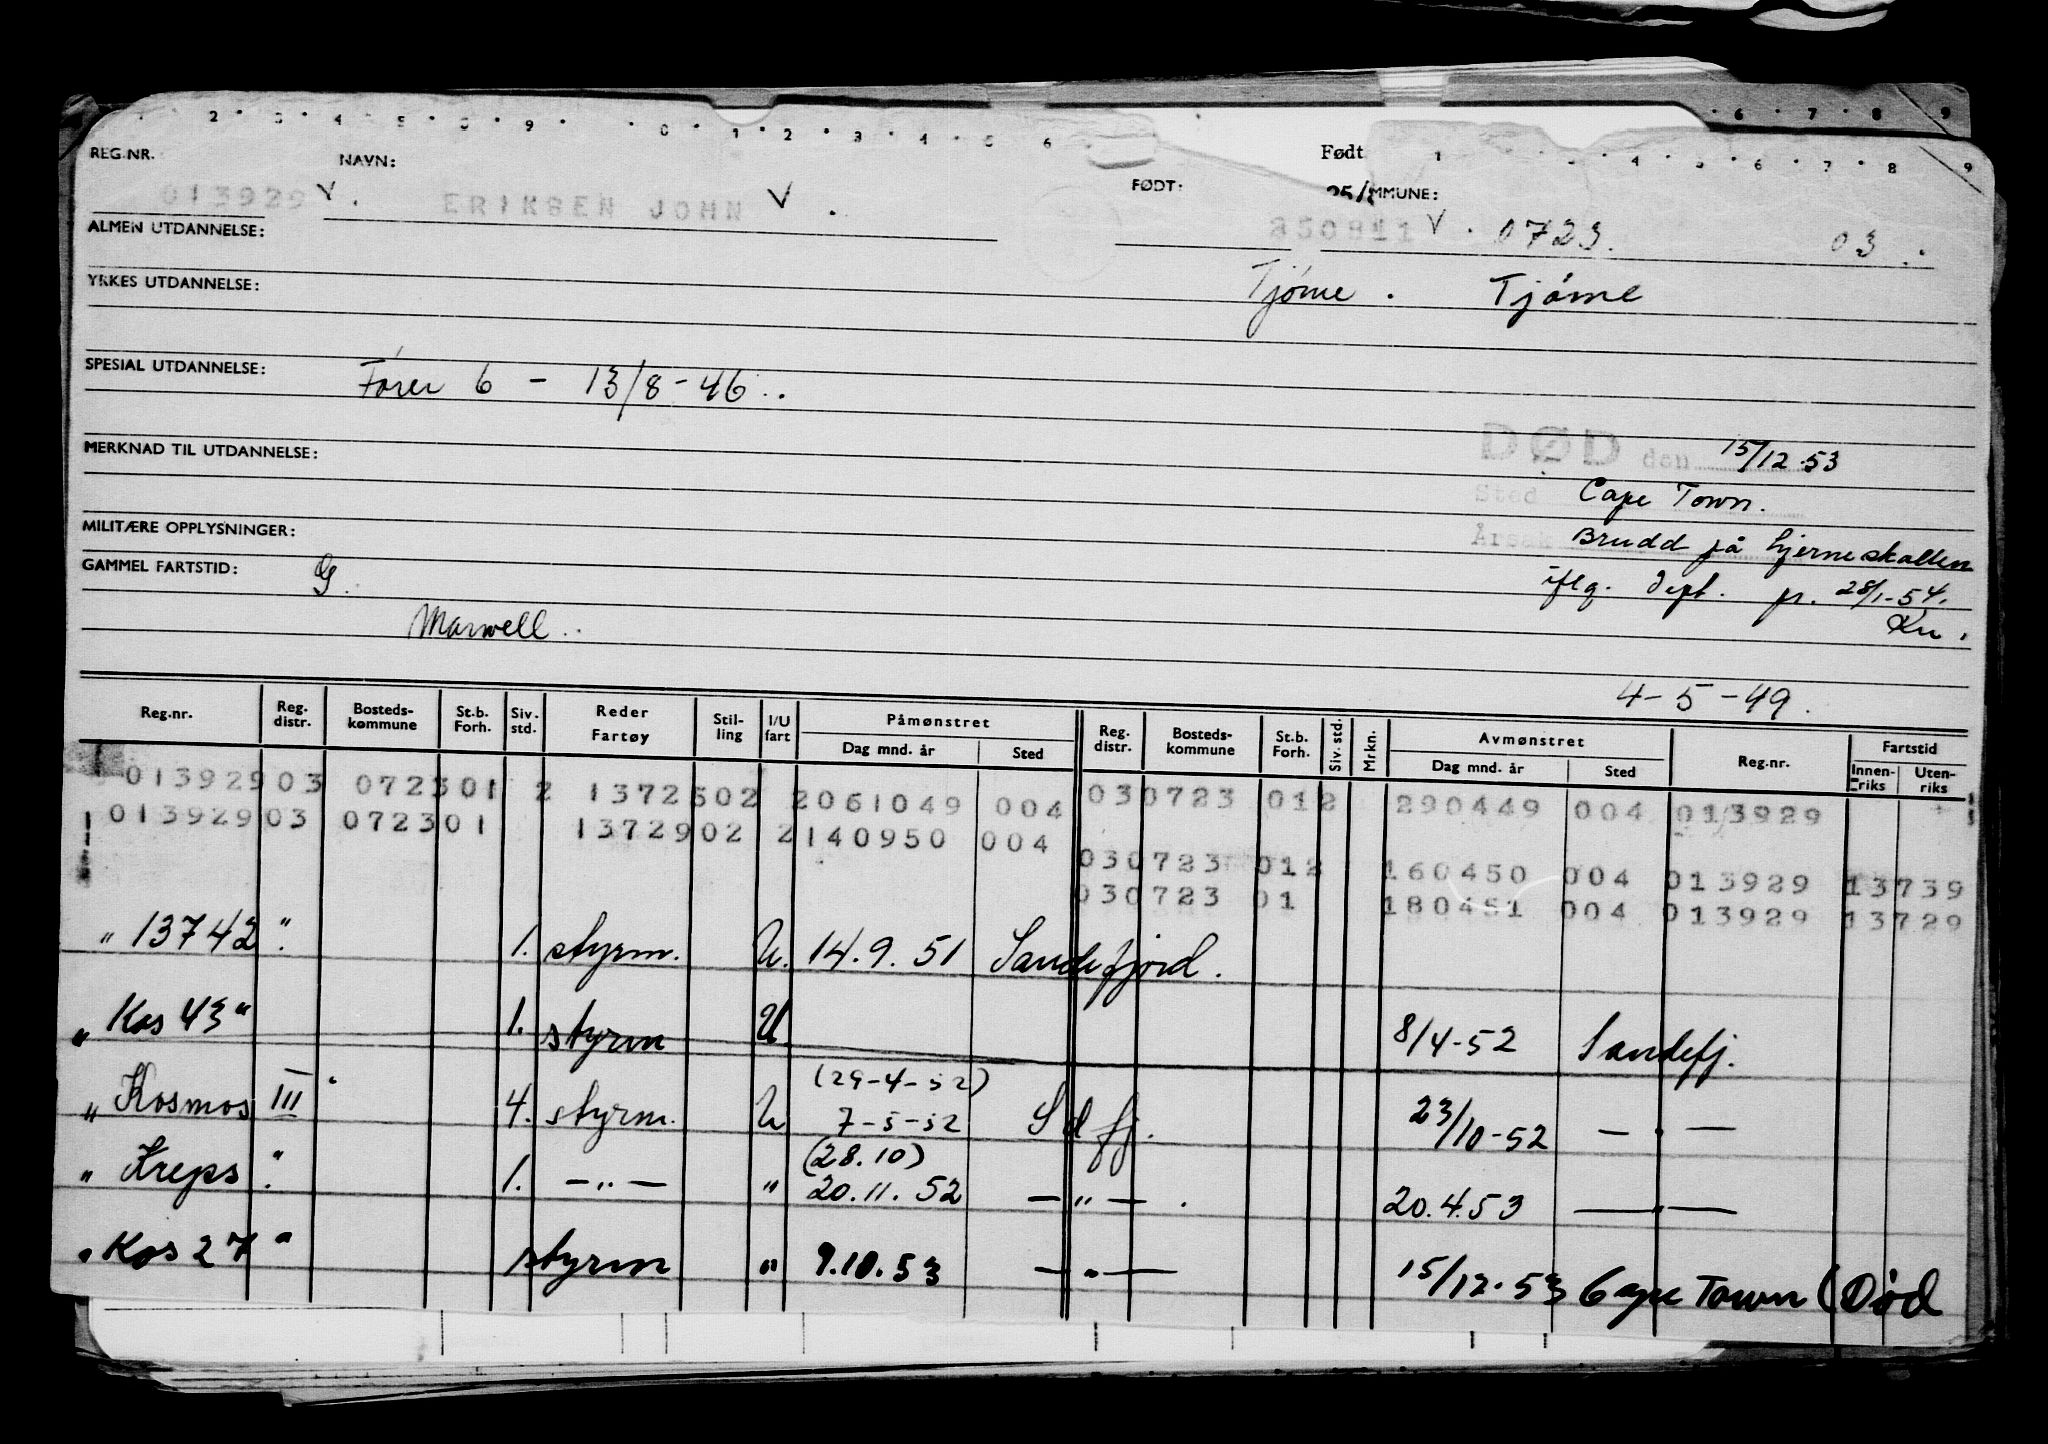 2 3 4 5 8 9 0 1 2 3 4 5 6 6 7 8 9
1 4 5 6 7 8 9
REG.NR. NAVN: FØDT: Født 25/ MMUNE:
013929 V. ERIKSEN JOHN V. V. 0723. 03.
ALMEN UTDANNELSE:
Tjøme. Tjøme
YRKES UTDANNELSE:
SPESIAL UTDANNELSE: Fører 6 - 13/8-46.
MERKNAD TIL UTDANNELSE: DØD den 15/12.53
Sted Cape Town.
MILITÆRE OPPLYSNINGER: Årsak Brudd på hjerneskallen
GAMMEL FARTSTID: G. iflg. dept. pr. 28/1-54.
Marwell. Kn.
4-5-49.
Reg.nr. Reg. distr. Bosteds-kommune St.b. Forh. Siv. std. Reder Fartøy Stil-ling I/U fart Påmønstret Dag mnd. år Sted Reg. distr. Bosteds-kommune St.b. Forh. Siv. std. Mrkn. Avmønstret Dag mnd. år Sted Reg.nr. Fartstid Innen-riks Uten-riks
013929 03 0723 01 2 1372502 2 061049 004 03 0723 012 290449 004 013929
013929 03 0723 01 1372902 2 140950 004
03 0723 012 160450 004 013929 13739
03 0723 01 180451 004 013929 13729
" 13742 ". 1. styrm. U. 14.9.51 Sandefjord.
" Kos 43 " 1. styrm U 8/4-52 Sandefj.
(29-4-52)
" Kosmos III " 4. styrm. U 7-5-52 Sdfj. 23/10-52 — " —
(28.10)
" Kreps ". 1. — " — " 20.11.52 — " — . 20.4.53 — " —
" Kos 27 " styrm " 9.10.53 — " — 15/12.53 Cape Town (Død